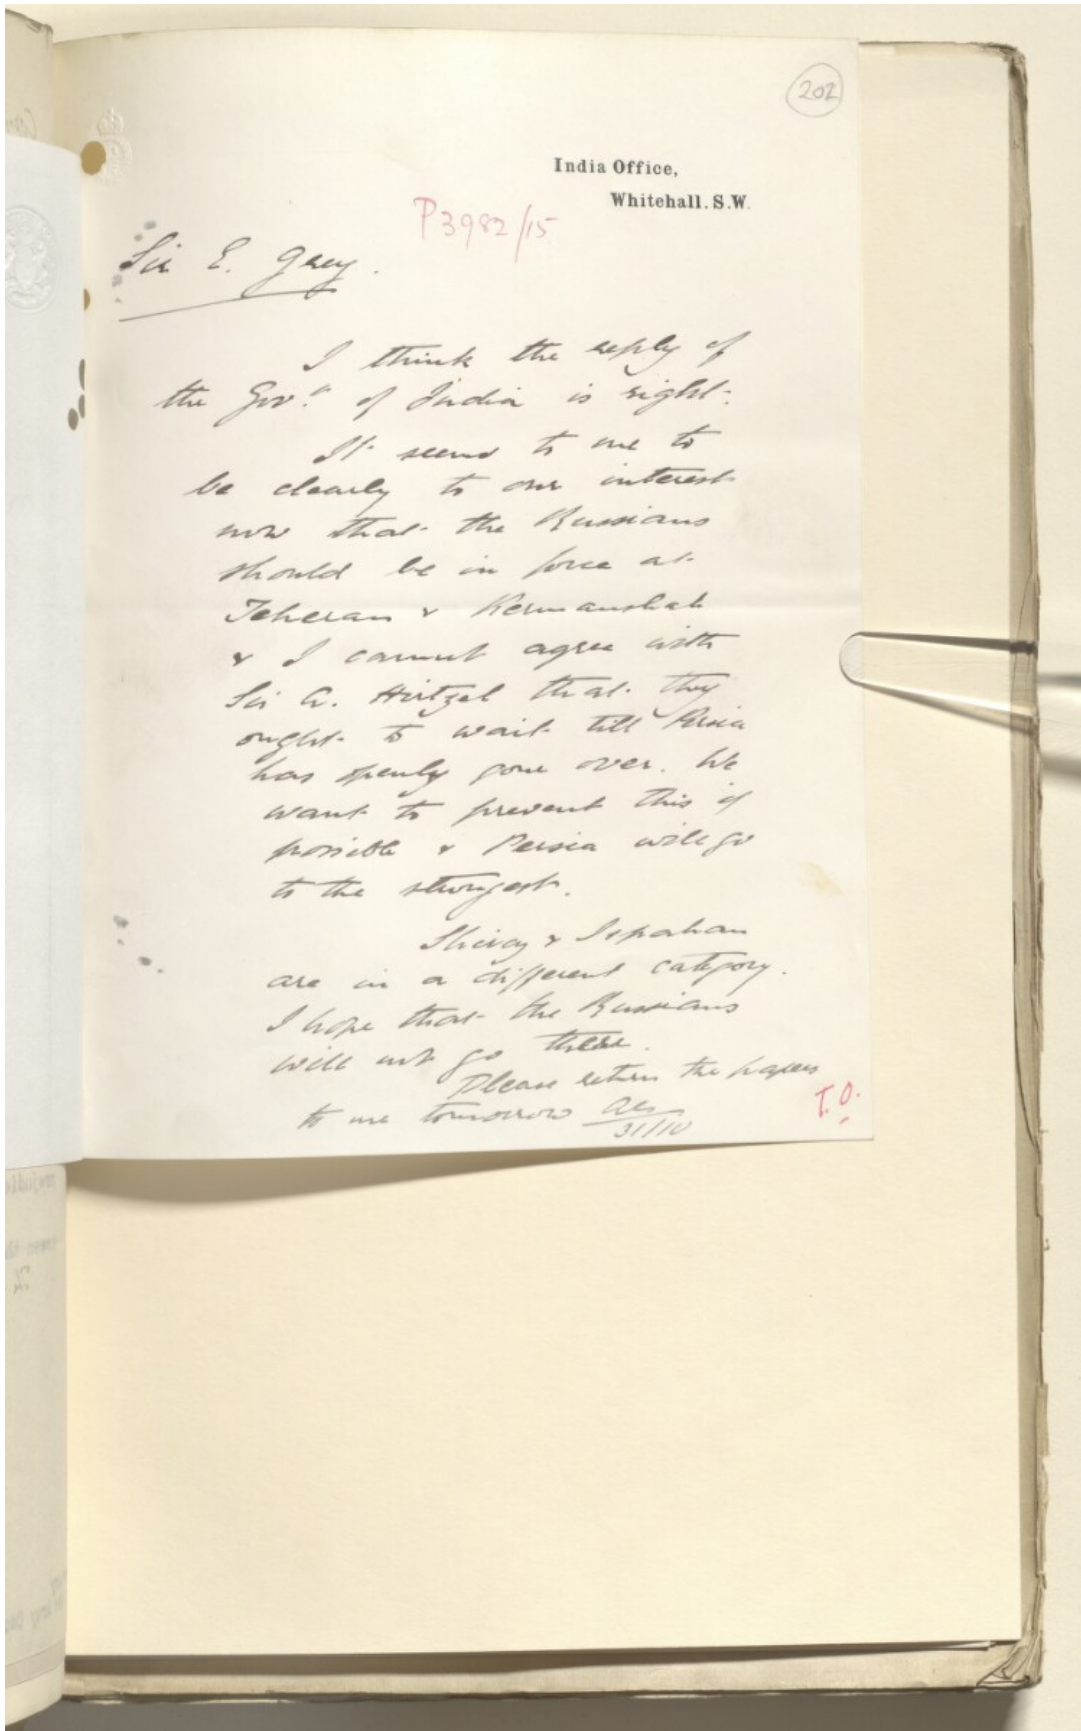 202
India Office,
Whitehall. S.W.
P3982/15
Sir E. Grey.
I think the reply of
the Govt. of India is right.
It seems to me to
be clearly to our interest
now that the Russians
should be in force at
Teheran & Kermanshah
& I cannot agree with
Sir A. Hirtzel that they
ought to wait till Persia
has openly gone over. We
want to prevent this if
possible & Persia will go
to the strongest.
Shiraz & Ispahan
are in a different category.
I hope that the Russians
will not go there.
Please return the papers
to me tomorrow AC
31/10
T.O.